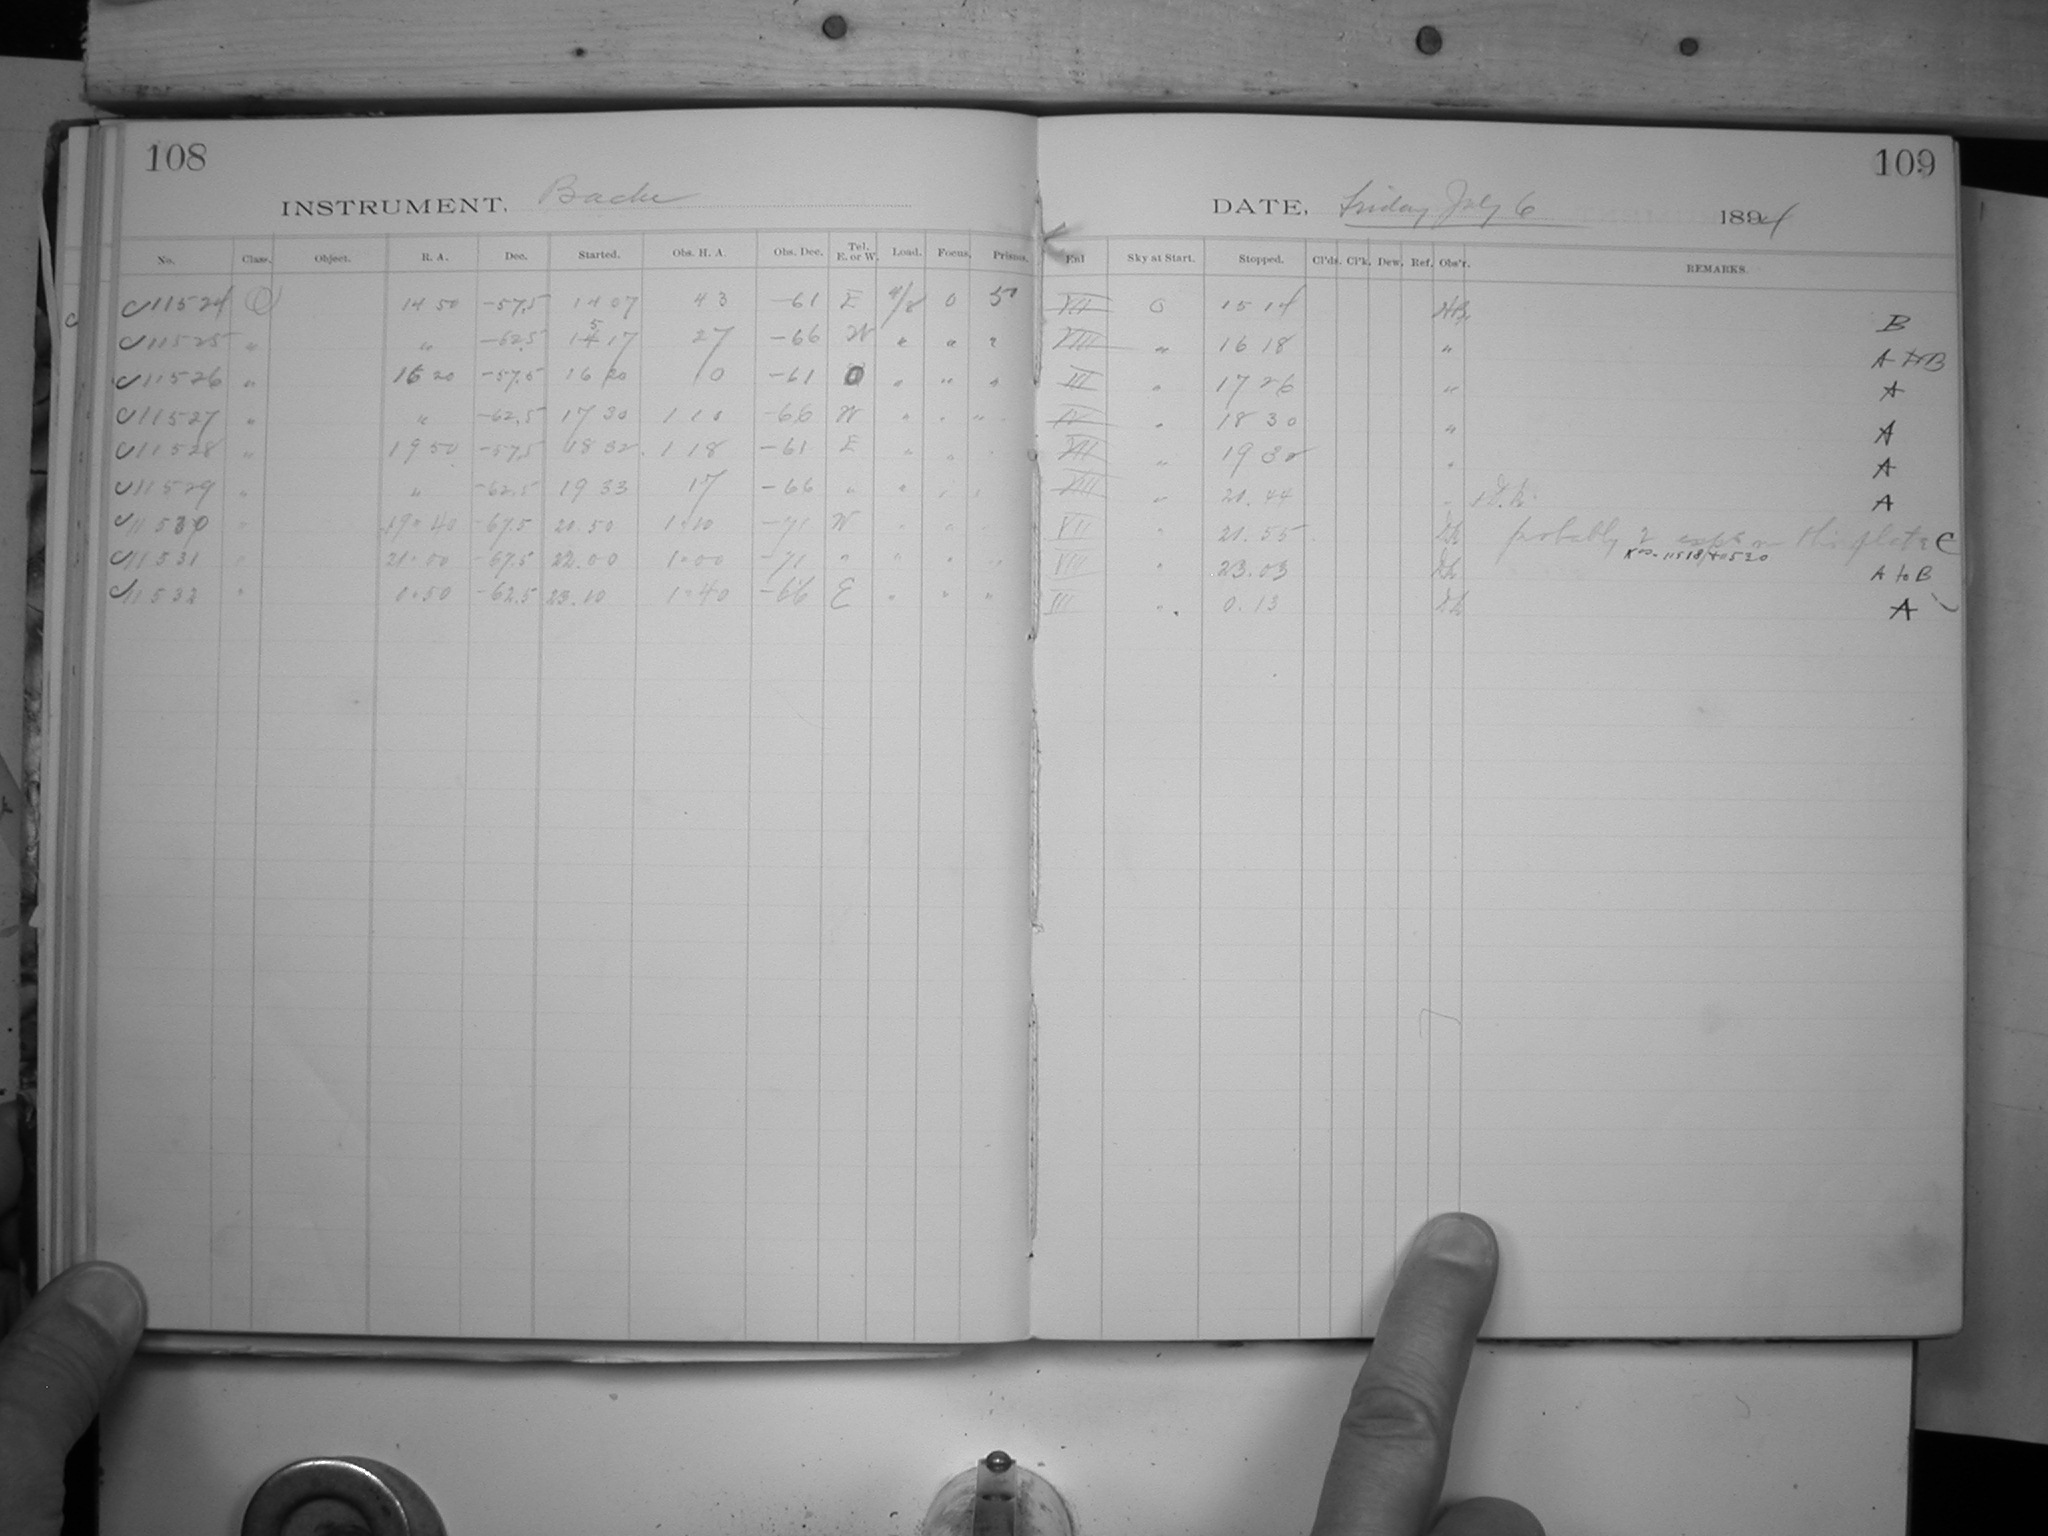 108
INSTRUMENT, Bache
No. Class. Object. R. A. Dec. Started. Obs. H. A. Obs. Dec. Tel. E. or W. Load. Focus. Prisms.
11524 14 50 -57.5 14 07 43 -61 E 0 5
11525 " " -62.5 15 17 27 -66 W " " "
11526 " 16 20 -57.5 16 20 0 -61 " " "
11527 " " -62.5 17 30 1 10 -66 W " " "
11528 " 19 50 -57.5 18 32 1 18 -61 E " "
11529 " " -62.5 19 33 17 -66 " "
11530 " 19 40 -67.5 20.50 1 10 -71 W " "
11531 " 21 00 -67.5 22.00 1 00 -71 " " " "
11532 " 0 50 -62.5 23.10 1 40 -66 E " " "
109
DATE, Friday July 6 1894
Sky at Start. Stopped. Cl'ds. Cl'k. Dew. Ref. Obs'r. REMARKS.
VII 0 15 14 B
VIII " 16 18 " A to B
III " 17 26 " A
IV " 18 30 " A
VII " 19 32 " A
VIII " 20.44 " A
VII " 21.55 probably 2 exps on this plate C
VIII " 23.03 A to B
III " 0.13 A